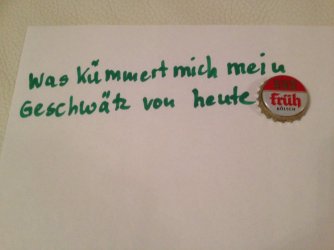 Was kümmert mich mein
Geschwätz von heute
früh
KÖLSCH